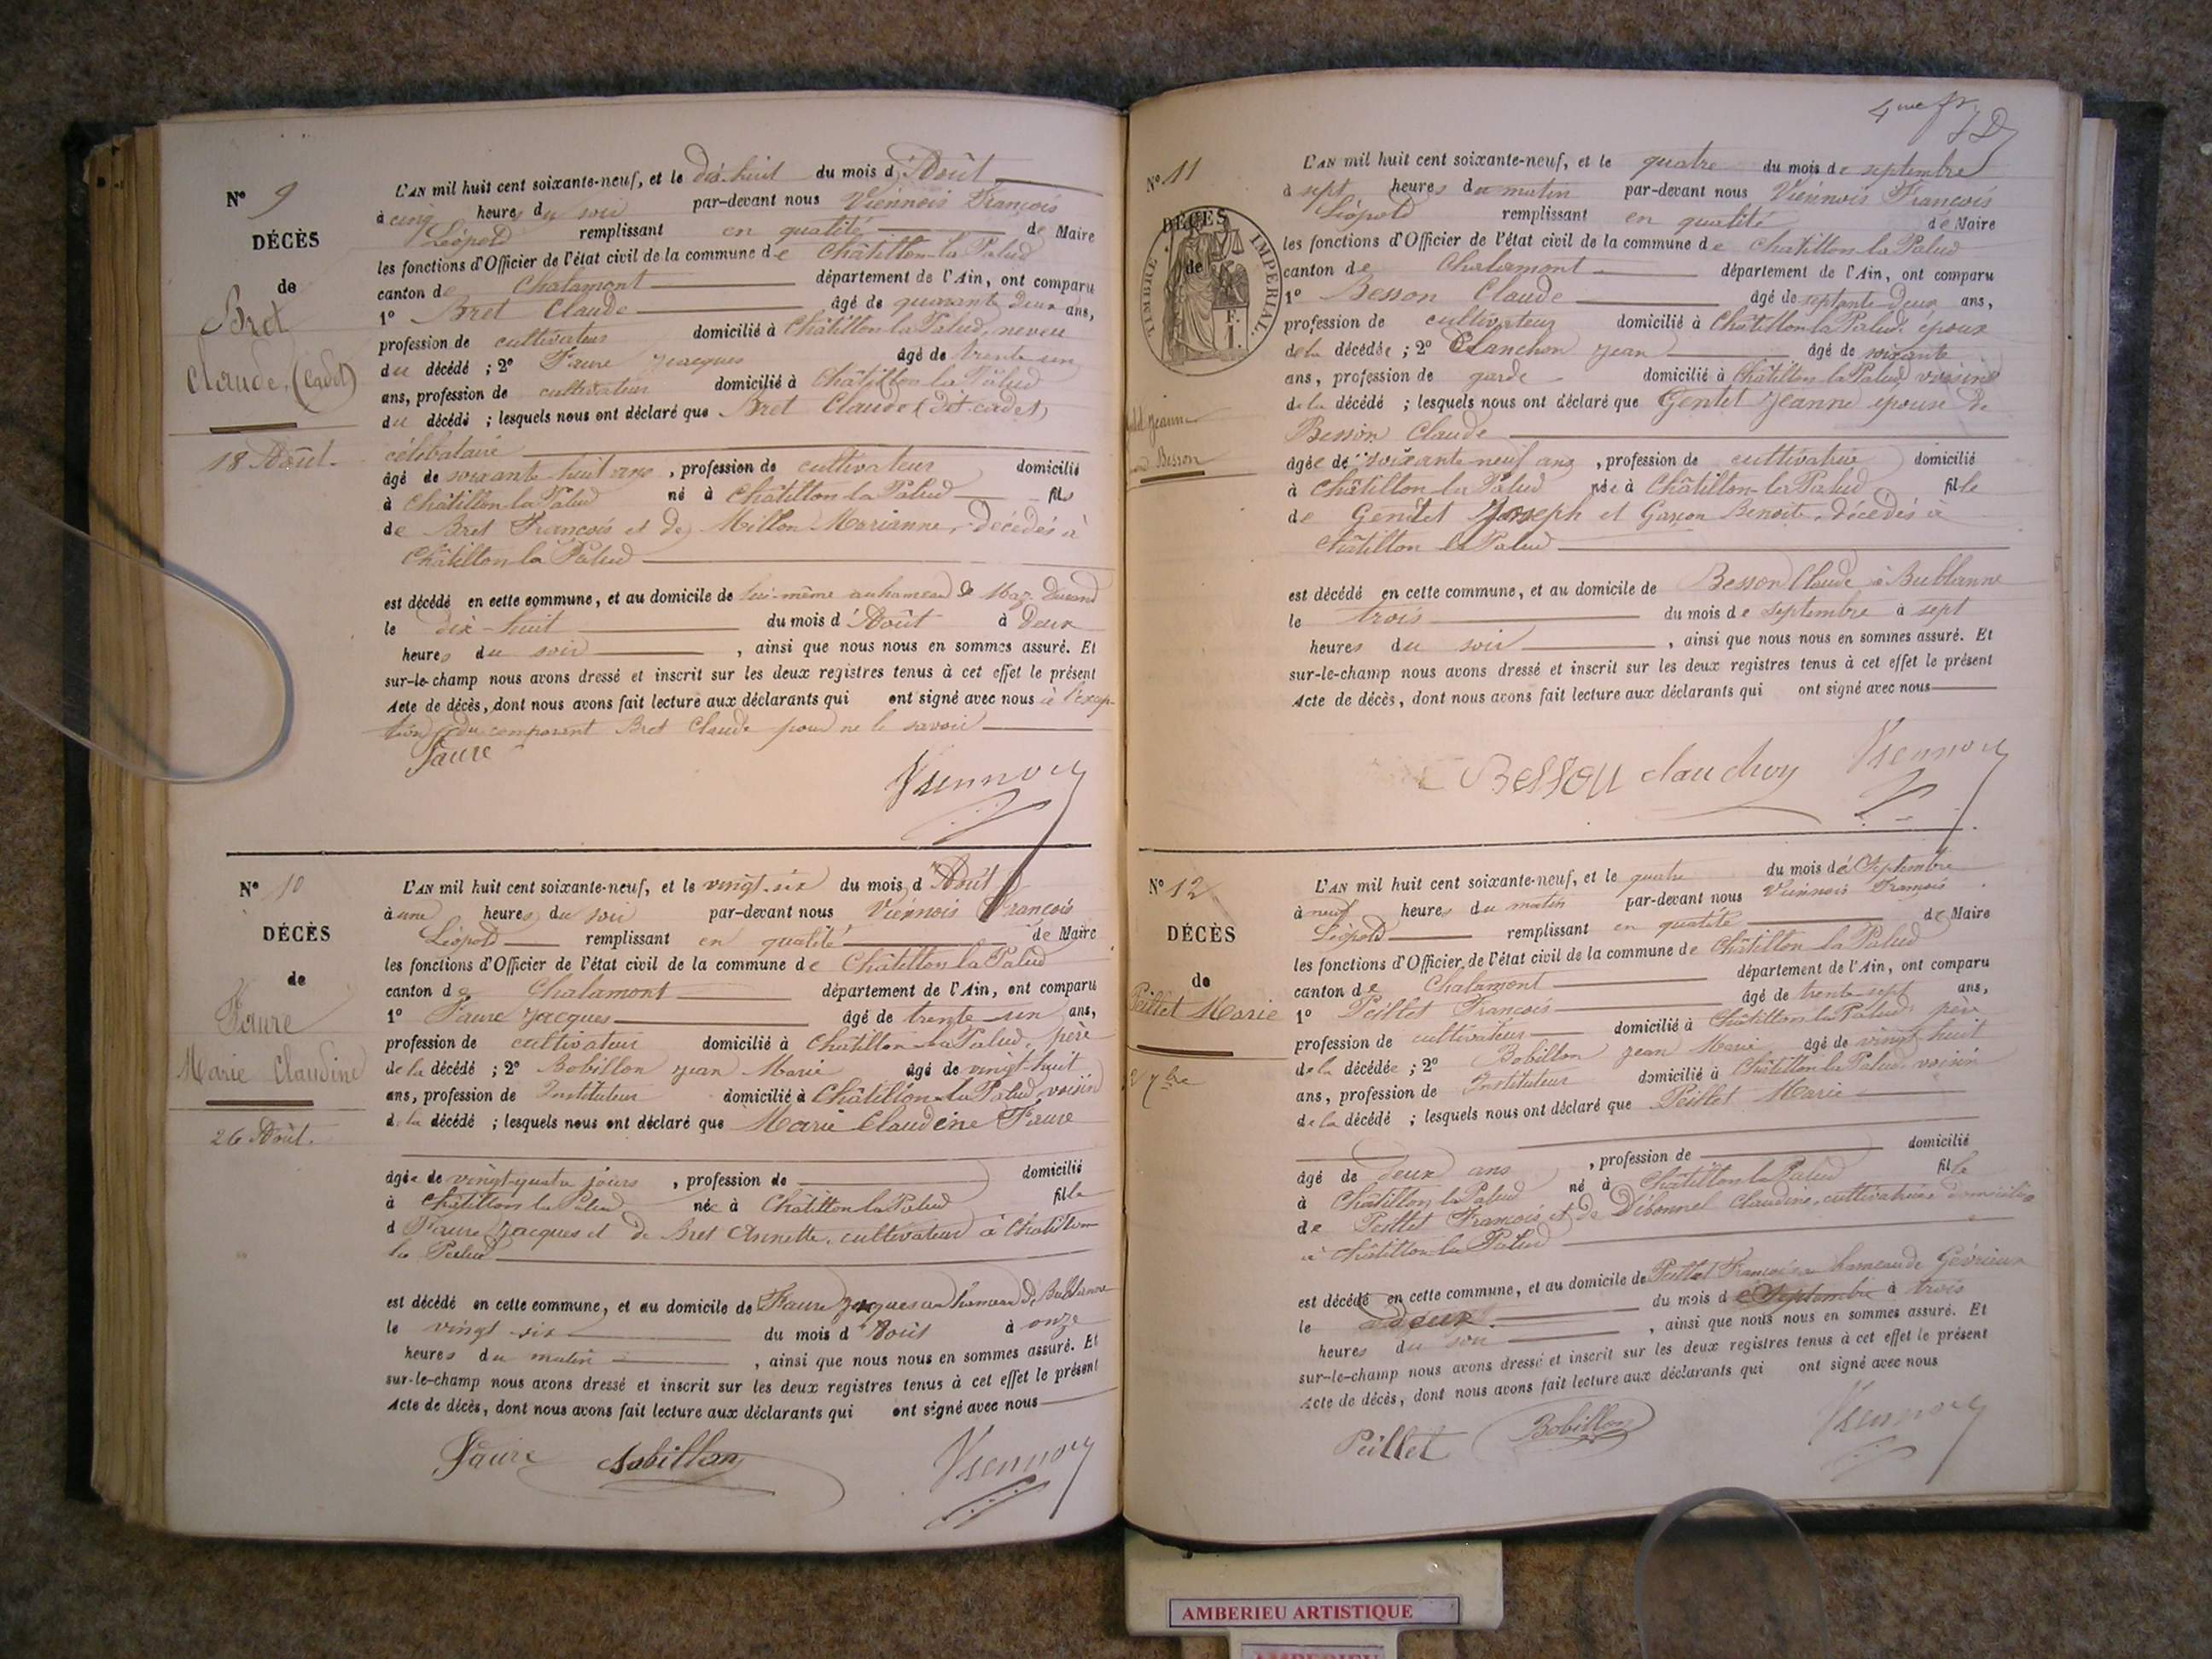 Nº 9
DÉCÈS
de
Bret
Claude, (Cadet)
18 Août.
L'AN mil huit cent soixante-neuf, et le dix-huit du mois d'Août
à cinq heures du soir par-devant nous Viennois François
Léopold remplissant en qualité de Maire
les fonctions d'Officier de l'état civil de la commune de Châtillon-la-Palud
canton de Chalamont département de l'Ain, ont comparu
1º Bret Claude âgé de quarante deux ans,
profession de cultivateur domicilié à Châtillon la Palud, neveu
du décédé ; 2º Faure Jacques âgé de trente-un
ans, profession de cultivateur domicilié à Châtillon la Palud
du décédé ; lesquels nous ont déclaré que Bret Claude (dit cadet)
célibataire
âgé de soixante huit ans, profession de cultivateur domicilié
à Châtillon la Palud né à Châtillon la Palud fils
de Bret François et de Millon Marianne, décédés à
Châtillon la Palud
est décédé en cette commune, et au domicile de lui-même au hameau de Maz-Durand
le dix-huit du mois d'Août à deux
heures du soir, ainsi que nous nous en sommes assuré. Et
sur-le-champ nous avons dressé et inscrit sur les deux registres tenus à cet effet le présent
Acte de décès, dont nous avons fait lecture aux déclarants qui ont signé avec nous à l'excep-
tion du comparant Bret Claude pour ne le savoir
Faure
Viennois
Nº 10
DÉCÈS
de
Faure
Marie Claudine
26 Août.
L'AN mil huit cent soixante-neuf, et le vingt-six du mois d'Août
à une heures du soir par-devant nous Viennois François
Léopold remplissant en qualité de Maire
les fonctions d'Officier de l'état civil de la commune de Châtillon la Palud
canton de Chalamont département de l'Ain, ont comparu
1º Faure Jacques âgé de trente-un ans,
profession de cultivateur domicilié à Châtillon-la-Palud, père
de la décédé ; 2º Bobillon Jean Marie âgé de vingt-huit
ans, profession de Instituteur domicilié à Châtillon-la-Palud, voisin
de la décédé ; lesquels nous ont déclaré que Marie Claudine Faure
âgée de vingt-quatre jours, profession de domicilié
à Châtillon la Palud née à Châtillon la Palud fille
d Faure Jacques et de Bret Annette, cultivateurs à Châtillon
la Palud
est décédé en cette commune, et au domicile de Faure Jacques au hameau de Bublanne
le vingt-six du mois d'Août à onze
heures du matin, ainsi que nous nous en sommes assuré. Et
sur-le-champ nous avons dressé et inscrit sur les deux registres tenus à cet effet le présent
Acte de décès, dont nous avons fait lecture aux déclarants qui ont signé avec nous
Faure Bobillon Viennois
4me
Nº 11
DÉCÈS
de
TIMBRE IMPÉRIAL
1 F.
Jeanne
Besson
L'AN mil huit cent soixante-neuf, et le quatre du mois de septembre
à sept heures du matin par-devant nous Viennois François
Léopold remplissant en qualité de Maire
les fonctions d'Officier de l'état civil de la commune de Châtillon la Palud
canton de Chalamont département de l'Ain, ont comparu
1º Besson Claude âgé de septante-deux ans,
profession de cultivateur domicilié à Châtillon la Palud, époux
de la décédée ; 2º Blanchon Jean âgé de soixante
ans, profession de garde domicilié à Châtillon la Palud, voisin
de la décédé ; lesquels nous ont déclaré que Gentet Jeanne épouse de
Besson Claude
âgée de soixante-neuf ans, profession de cultivatrice domicilié
à Châtillon la Palud née à Châtillon-la-Palud fille
de Gentet Joseph et Garçon Benoite, décédés à
Châtillon la Palud
est décédé en cette commune, et au domicile de Besson Claude à Bublanne
le trois du mois de septembre à sept
heures du soir, ainsi que nous nous en sommes assuré. Et
sur-le-champ nous avons dressé et inscrit sur les deux registres tenus à cet effet le présent
Acte de décès, dont nous avons fait lecture aux déclarants qui ont signé avec nous
Besson Viennois
Nº 12
DÉCÈS
de
Peillet Marie
2 7bre
L'AN mil huit cent soixante-neuf, et le quatre du mois de Septembre
à neuf heures du matin par-devant nous Viennois François
Léopold remplissant en qualité de Maire
les fonctions d'Officier de l'état civil de la commune de Châtillon la Palud
canton de Chalamont département de l'Ain, ont comparu
1º Peillet François âgé de trente-sept ans,
profession de cultivateur domicilié à Châtillon la Palud, père
de la décédée ; 2º Bobillon Jean Marie âgé de vingt-huit
ans, profession de Instituteur domicilié à Châtillon la Palud, voisin
de la décédé ; lesquels nous ont déclaré que Peillet Marie
âgé de deux ans, profession de domicilié
à Châtillon la Palud né à Châtillon la Palud fille
de Peillet François et de Débonnel Claudine, cultivateurs domiciliés
à Châtillon-la-Palud
est décédé en cette commune, et au domicile de Peillet François au hameau de Gévrieux
le deux du mois de Septembre à trois
heures du soir, ainsi que nous nous en sommes assuré. Et
sur-le-champ nous avons dressé et inscrit sur les deux registres tenus à cet effet le présent
Acte de décès, dont nous avons fait lecture aux déclarants qui ont signé avec nous
Peillet Bobillon Viennois
AMBERIEU ARTISTIQUE
AMBERIEU